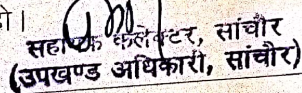 हो।
सहायक कलेक्टर, सांचौर
(उपखण्ड अधिकारी, सांचौर)